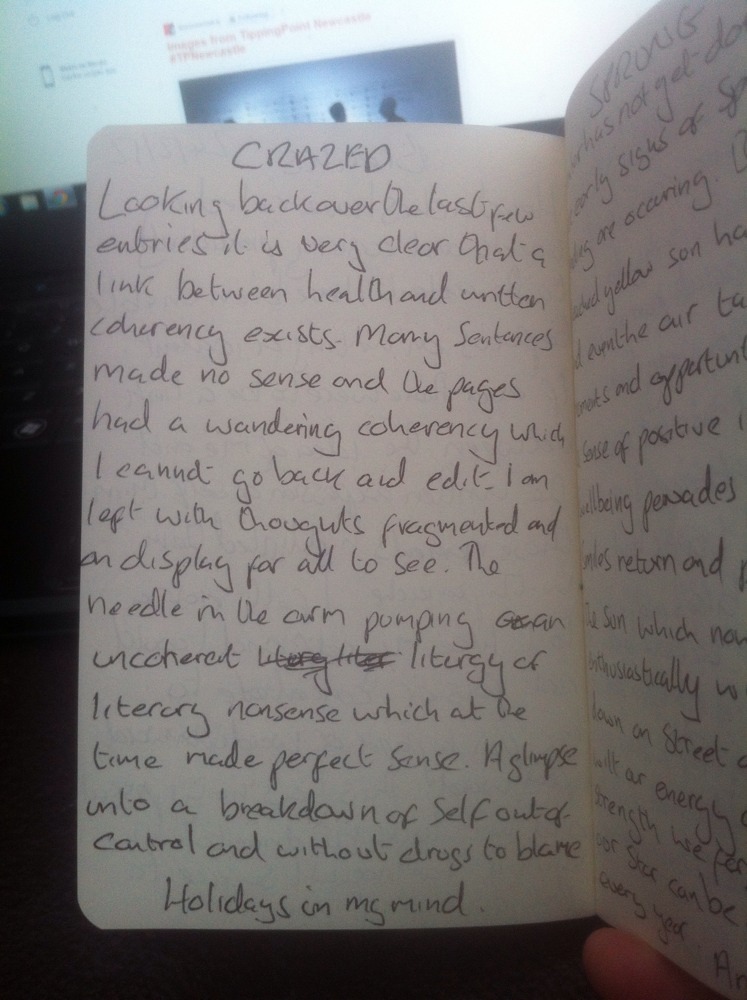 Images from TippingPoint Newcastle
#TPNewcastle
CRAZED
Looking back over the last few
entries it is very clear that a
link between health and written
coherency exists. Many sentences
made no sense and the pages
had a wandering coherency which
I cannot go back and edit. I am
left with thoughts fragmented and
on display for all to see. The
needle in the arm pumping an
uncoherent liturgy of
literary nonsense which at the
time made perfect sense. A glimpse
into a breakdown of self out of
control and without drugs to blame
Holidays in my mind.
SPRUNG
has not get
early signs of
are occuring.
yellow son
even the air
and
sense of positive
wellbeing pervades
return and
the Sun which now
enthusiastically
down on Street
our energy
strength we
our Star can be
every year.